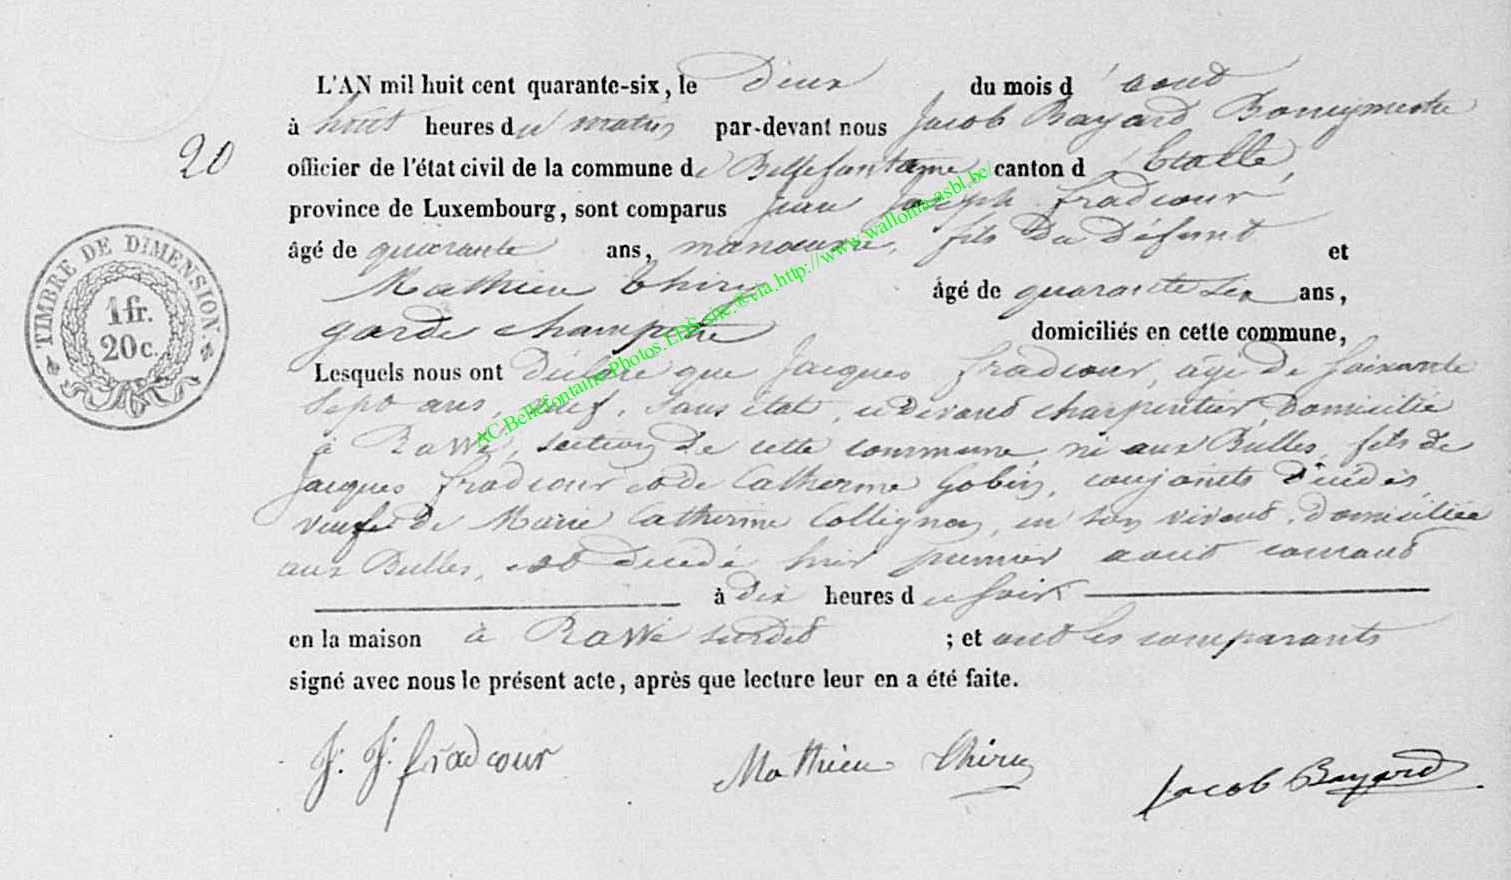 L'AN mil huit cent quarante-six, le Deux du mois d'aout
à huit heures du matin par-devant nous Jacob Bayard Bourgmestre
20
officier de l'état civil de la commune de Bellefontaine, canton d'Etalle,
province de Luxembourg, sont comparus Jean Joseph Fradcour,
âgé de quarante ans, manoeuvre, fils Du Défunt et
Mathieu Thiry âgé de quarante six ans,
garde champetre domiciliés en cette commune,
Lesquels nous ont Déclaré que Jacques Fradcour, âgé de Soixante
Sept ans, veuf, Sans état, cidevant charpentier Domicilié
à RaWé, section De cette commune, né aux Bulles, fils de
Jacques Fradcour et de Catherine Gobin, conjoints Décédés,
veuf de Marie Catherine Collignon, en son vivant, domiciliée
aux Bulles, est Decedé hier premier aout courant
à dix heures du Soir
en la maison à RaWé susdit ; et ont les comparants
signé avec nous le présent acte, après que lecture leur en a été faite.
J: J: fradcour Mathieu Thiry Jacob Bayard
TIMBRE DE DIMENSION.
1 fr.
20 c.
AC.Bellefontaine.Photos.LDS.site.®via.http://www.wallonia-asbl.be/